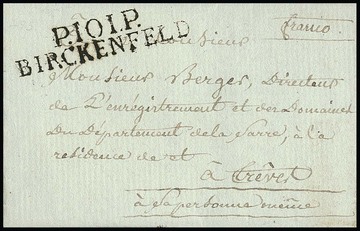 P.101.P.
BIRCKENFELD
franco.
A Monsieur
Monsieur Berges, Directeur
de L'enrégistrement et des Domaines
Du Département de la Sarre, à la
residence de et
à Trêves
à Sa personne même